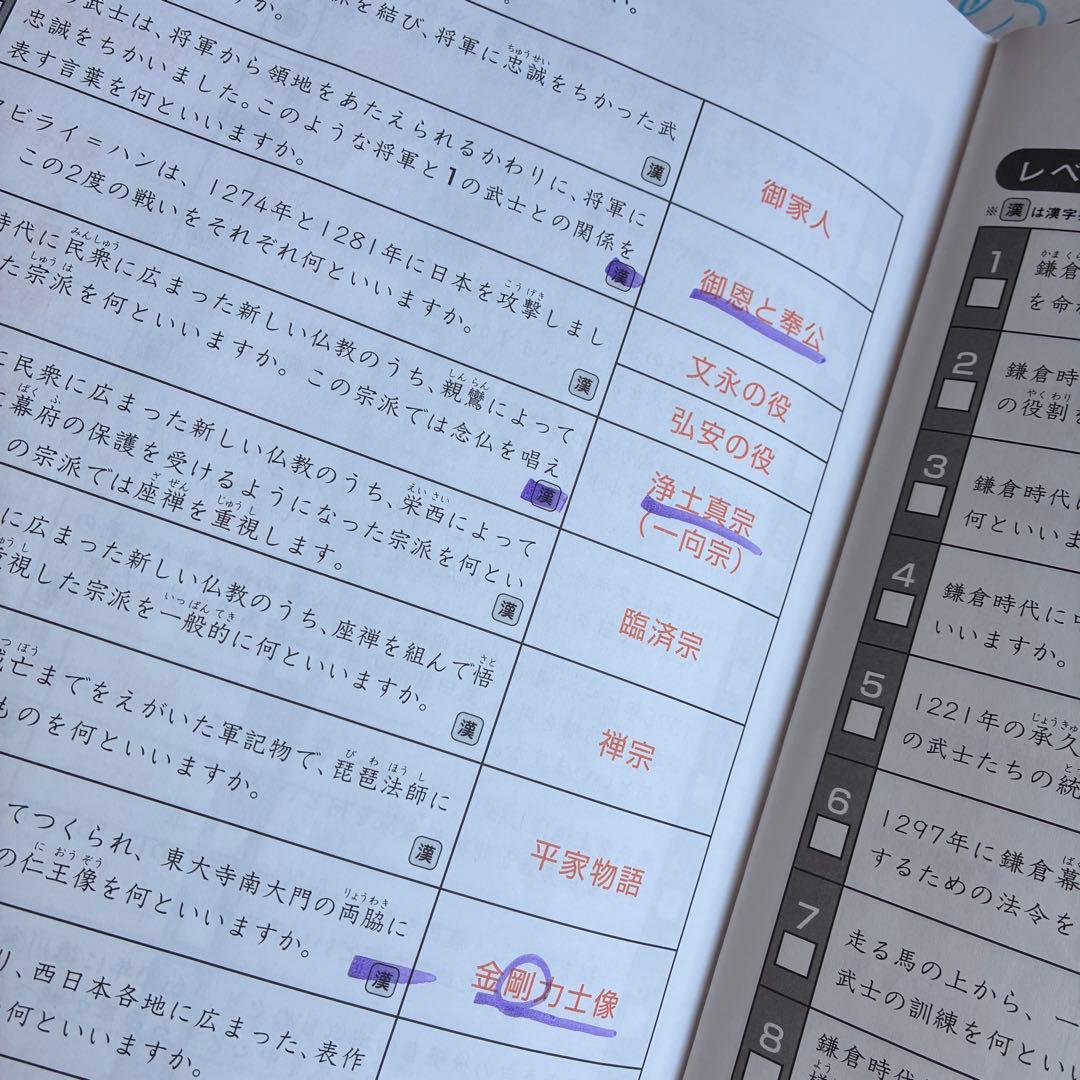 を結び、将軍に忠誠をちかった武
漢
御家人
武士は、将軍から領地をあたえられるかわりに、将軍に
忠誠をちかいました。このような将軍と1の武士との関係を
表す言葉を何といいますか。
漢
御恩と奉公
ビライ=ハンは、1274年と1281年に日本を攻撃しまし
この2度の戦いをそれぞれ何といいますか。
漢
文永の役
弘安の役
時代に民衆に広まった新しい仏教のうち、親鸞によって
た宗派を何といいますか。この宗派では念仏を唱え
漢
浄土真宗
(一向宗)
に民衆に広まった新しい仏教のうち、栄西によって
幕府の保護を受けるようになった宗派を何とい
の宗派では座禅を重視します。
漢
臨済宗
に広まった新しい仏教のうち、座禅を組んで悟
重視した宗派を一般的に何といいますか。
漢
禅宗
亡までをえがいた軍記物で、琵琶法師に
ものを何といいますか。
漢
平家物語
てつくられ、東大寺南大門の両脇に
の仁王像を何といいますか。
漢
金剛力士像
り、西日本各地に広まった、表作
何といいますか。
レベ
※漢は漢字
1
鎌倉
を命
2
鎌倉時
の役割
3
鎌倉時代
何といい
4
鎌倉時代に
いいますか。
5
1221年の承久
の武士たちの統
6
1297年に鎌倉幕
するための法令を
7
走る馬の上から、一
武士の訓練を何とい
8
鎌倉時代